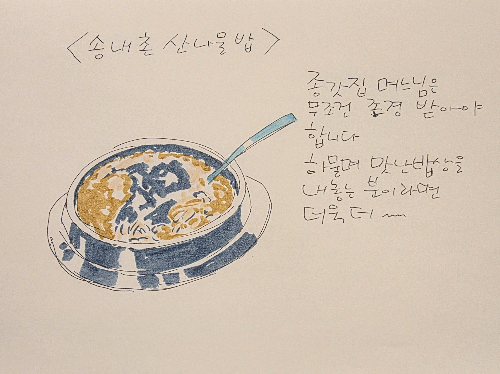 <송내촌 산나물밥>
종갓집 며느님은
무조건 존경 받아야
합니다
하물며 맛난밥상을
내놓는 분이라면
더욱 더 ~